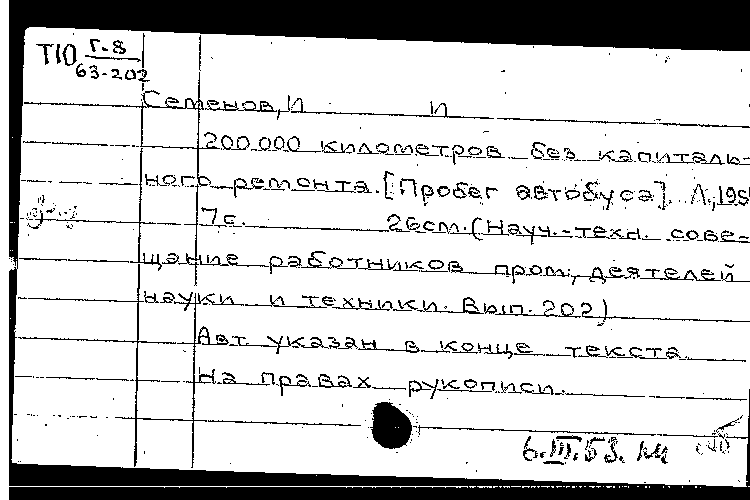 Т10 Г-8
63-202
Семенов, И И
200.000 километров без капиталь-
ного ремонта. [Пробег автобуса]. Л., 195
7 с. 26 см. (Науч.-техн. сове-
щание работников пром., деятелей
науки и техники. Вып. 202)
Авт. указан в конце текста.
На правах рукописи.
6.III.53.